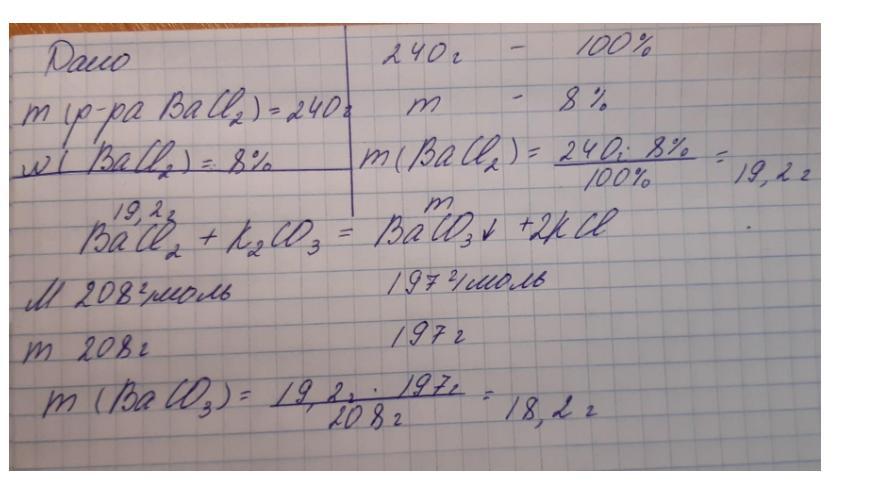 Дано
m (р-ра BaCl₂) = 240г
w ( BaCl₂) = 8%
240г - 100%
m - 8%
m (BaCl₂) = 240г · 8% / 100% = 19,2 г
19,2г m
BaCl₂ + K₂CO₃ = BaCO₃↓ +2KCl
M 208г/моль 197г/моль
m 208г 197г
m (BaCO₃) = 19,2г · 197г / 208г = 18,2 г